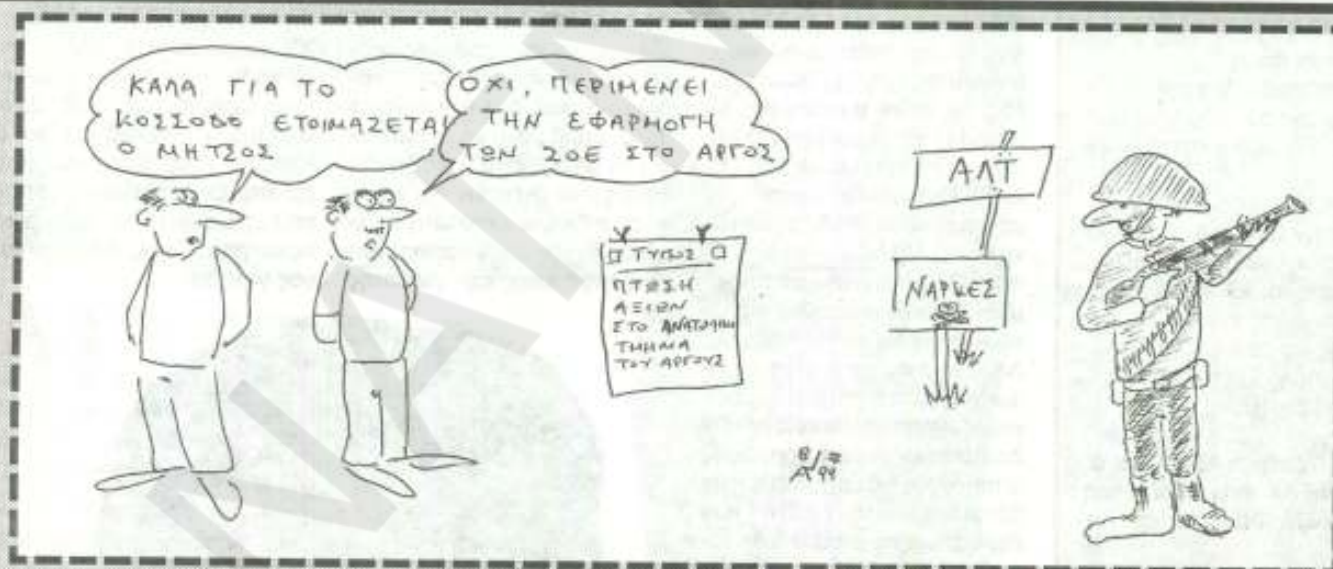 ΚΑΛΑ ΓΙΑ ΤΟ
ΚΟΣΣΟΒΟ ΕΤΟΙΜΑΖΕΤΑΙ
Ο ΜΗΤΣΟΣ
ΟΧΙ, ΠΕΡΙΜΕΝΕΙ
ΤΗΝ ΕΦΑΡΜΟΓΗ
ΤΩΝ ΖΟΕ ΣΤΟ ΑΡΓΟΣ
ΤΥΠΟΣ
ΠΤΩΣΗ
ΑΞΙΩΝ
ΣΤΟ ΑΝΑΤΟΛΙΚΟ
ΤΜΗΜΑ
ΤΟΥ ΑΡΓΟΥΣ
ΑΛΤ
ΝΑΡΚΕΣ